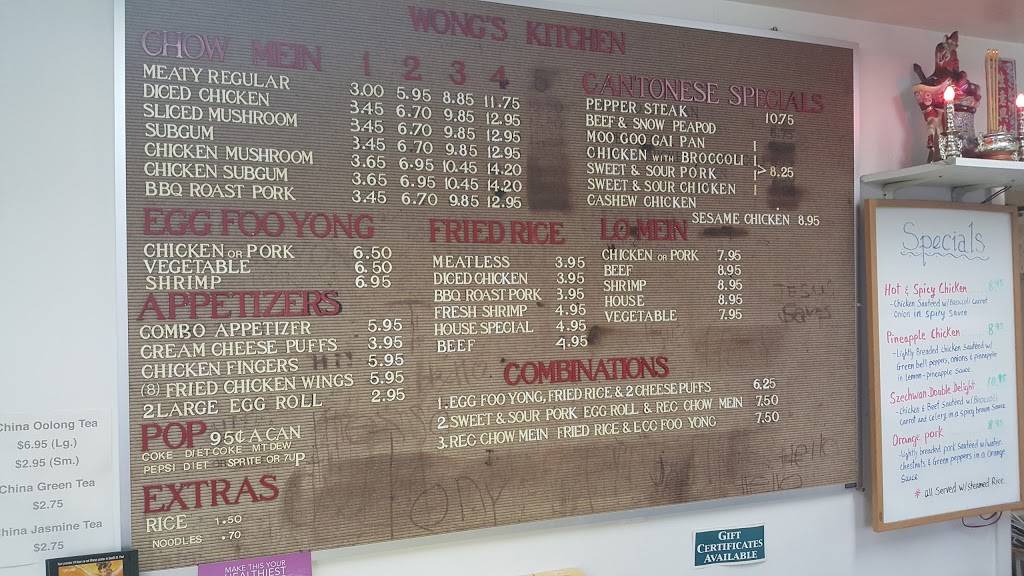 WONG'S KITCHEN
CHOW MEIN 1 2 3 4 5
MEATY REGULAR 3.00 5.95 8.85 11.75
DICED CHICKEN 3.45 6.70 9.85 12.95
SLICED MUSHROOM 3.45 6.70 9.85 12.95
SUBGUM 3.45 6.70 9.85 12.95
CHICKEN MUSHROOM 3.65 6.95 10.45 14.20
CHICKEN SUBGUM 3.65 6.95 10.45 14.20
BBQ ROAST PORK 3.45 6.70 9.85 12.95
CANTONESE SPECIALS
PEPPER STEAK 10.75
BEEF & SNOW PEAPOD
MOO GOO GAI PAN
CHICKEN WITH BROCCOLI
SWEET & SOUR PORK > 8.25
SWEET & SOUR CHICKEN
CASHEW CHICKEN
SESAME CHICKEN 8.95
EGG FOO YONG
CHICKEN OR PORK 6.50
VEGETABLE 6.50
SHRIMP 6.95
FRIED RICE
MEATLESS 3.95
DICED CHICKEN 3.95
BBQ ROAST PORK 3.95
FRESH SHRIMP 4.95
HOUSE SPECIAL 4.95
BEEF 4.95
LO MEIN
CHICKEN OR PORK 7.95
BEEF 8.95
SHRIMP 8.95
HOUSE 8.95
VEGETABLE 7.95
APPETIZERS
COMBO APPETIZER 5.95
CREAM CHEESE PUFFS 3.95
CHICKEN FINGERS 5.95
(8) FRIED CHICKEN WINGS 5.95
2 LARGE EGG ROLL 2.95
COMBINATIONS
1. EGG FOO YONG, FRIED RICE & 2 CHEESE PUFFS 6.25
2. SWEET & SOUR PORK EGG ROLL & REG CHOW MEIN 7.50
3. REG CHOW MEIN FRIED RICE & EGG FOO YONG 7.50
POP 95¢ A CAN
COKE DIET COKE MT DEW
PEPSI DIET SPRITE OR 7UP
EXTRAS
RICE 1.50
NOODLES .70
Hello
TONY
Hello
Hello
Specials
Hot & Spicy Chicken 8.95
- Chicken Sauteed w/Broccoli Carrot
Onion in spicy sauce
Pineapple Chicken 8.95
- Lightly Breaded chicken Sauteed w/
Green bell peppers, onions & pineapple
in lemon-pineapple sauce
Szechwan Double Delight
- Chicken & Beef Sauteed w/Broccoli
Carrot and Celery in a spicy brown Sauce
Orange pork 8.95
- Lightly breaded pork Sauteed w/water
chestnuts & Green peppers in a Orange
Sauce
* all Served w/steamed Rice
China Oolong Tea
$6.95 (Lg.)
$2.95 (Sm.)
China Green Tea
$2.75
China Jasmine Tea
$2.75
MAKE THIS YOUR
HEALTHIEST
GIFT
CERTIFICATES
AVAILABLE